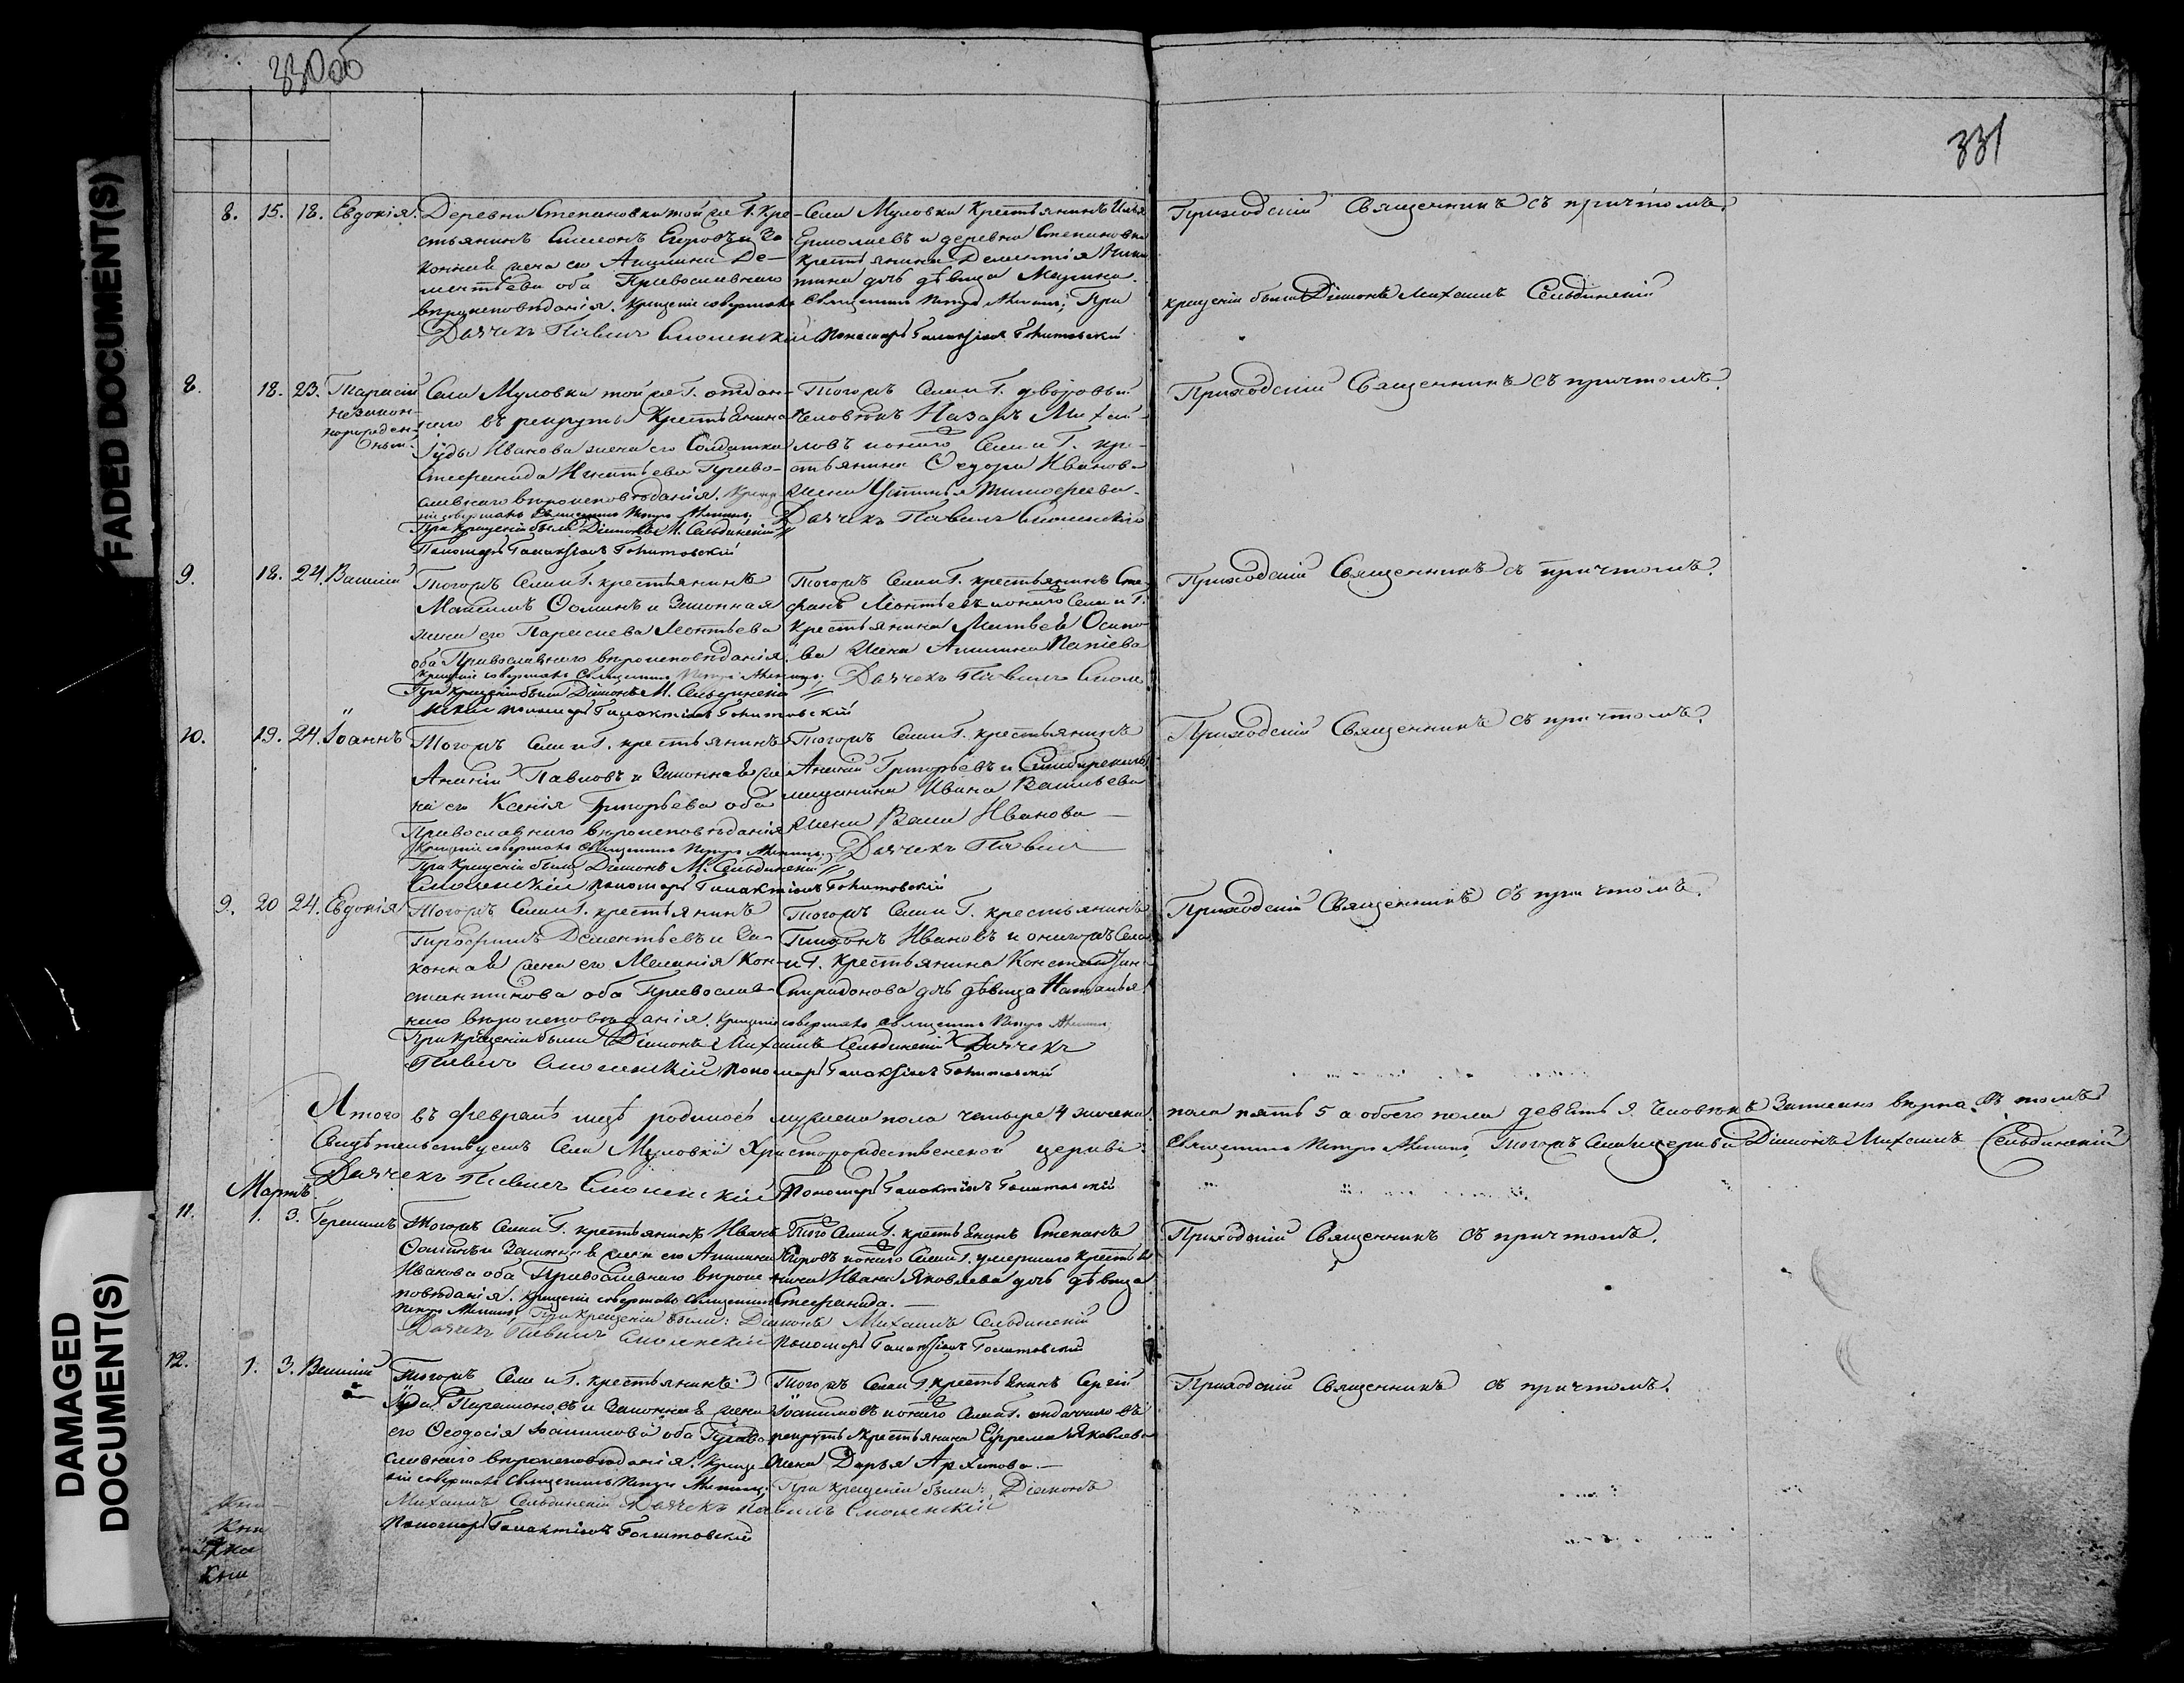 330об
331
8. 15. 18. Евдокія. Деревни Степановки той же Г. Кре-
стьянинъ Симеонъ Егоровъ и за
конная жена его Агипина Де-
ментьева оба Православнаго
вѣроисповѣданія. Крещеніе совершалъ Священникъ Петръ При
Дьячекъ Павелъ Смоленскій Пономарь Галактіонъ
Села Муловки Крестьянинъ Илья
Ермолаевъ и деревни Степановки
крестьянина Дементія Ники
тина дочь дѣвица Марина.
Приходскій Священникъ съ причтомъ.
крещеніи были Діаконъ Михаилъ Сельдинскій
8. 18. 23. Тарасій
незакон-
норожден-
ный.
Села Муловки той же Г. отдан-
наго въ рекруты Крестьянина
Іуды Иванова жена его Солдатка
Стефанида Игнатьева Право-
славнаго вѣроисповѣданія. Креще-
ніе совершалъ Священникъ Петръ
При крещеніи были Діаконъ М. Сельдинскій
Пономарь Галактіонъ
Тогожъ Села и Г. дворовый
человѣкъ Назаръ Михай-
ловъ и онаго Села и Г. кре-
стьянина Ѳедора Иванова
жена Устинья Тимофеева.
Дьячекъ Павелъ Смоленскій
Приходскій Священникъ съ причтомъ.
9. 18. 24. Василій
Тогожъ Села и Г. крестьянинъ
Максимъ Ѳоминъ и Законная
жена его Параскева Леонтьева
оба Православнаго вѣроисповѣданія.
Крещеніе совершалъ Священникъ Петръ
При крещеніи были Діаконъ М. Сельдинскій
Тогожъ Села и Г. крестьянинъ Сте-
фанъ Леонтьевъ и онаго Села и Г.
крестьянина Матвея Осипо-
ва жена Агипина
Дьячекъ Павелъ Смоле
нскій Пономарь Галактіонъ
Приходскій Священникъ съ причтомъ.
10. 19. 24. Іоаннъ
Тогожъ Села и Г. крестьянинъ
Павловъ и Законная же
на его Ксенія Григорьева оба
Православнаго вѣроисповѣданія
Крещеніе совершалъ Священникъ Петръ
При Крещеніи были Діаконъ М. Сельдинскій
Смоленскій Пономарь Галактіонъ
Тогожъ Села и Г. крестьянинъ
Григорьевъ и Симбирскаго
мещанина Ивана Васильева
жена Иванова
Дьячекъ Павелъ
Приходскій Священникъ съ причтомъ.
9. 20 24. Евдокія
Тогожъ Села и Г. крестьянинъ
Дементьевъ и За-
конная жена его Меланія Кон-
стантинова оба Православ-
наго вѣроисповѣданія. Крещеніе совершалъ Священникъ Петръ
При Крещеніи были Діаконъ Михаилъ Сельдинскій Дьячекъ
Павелъ Смоленскій Пономарь Галактіонъ
Тогожъ Села и Г. крестьянинъ
Тихонъ Ивановъ и оногожъ Села
и Г. Крестьянина Константина
Спиридонова дочь дѣвица Наталья
Приходскій Священникъ съ причтомъ.
Итого въ февралѣ мцѣ родилось мужеска пола четыре 4 женска пола пять 5 а обоего пола девять 9. человѣкъ Записано вѣрно. Въ томъ
Свидѣтельствуемъ Села Муловки Христорождественской церкви Священникъ Петръ Тогожъ Села и церкви Діаконъ Михаилъ Сельдинскій
Дьячекъ Павелъ Смоленскій Пономарь Галактіонъ
Мартъ.
11. 1. 3. Герасимъ
Тогожъ Села и Г. крестьянинъ Иванъ
Ѳоминъ и Законная жена его Агипина
Иванова оба Православнаго вѣроис
повѣданія. Крещеніе совершалъ Священникъ
Петръ При крещеніи были: Діаконъ Михаилъ Сельдинскій
Дьячекъ Павелъ Смоленскій Пономарь Галактіонъ
Того Села и Г. крестьянинъ Степанъ
Егоровъ и онаго Села и Г. умершаго крестья
нина Ивана Яковлева дочь дѣвица
Стефанида.
Приходскій Священникъ съ причтомъ.
12. 1. 3. Василій
Тогожъ Села и Г. крестьянинъ
Іуда Парамоновъ и Законная жена
его Ѳеодосія Іоакимова оба Право
славнаго вѣроисповѣданія. Креще
ніе совершалъ Священникъ Петръ При крещеніи были: Діаконъ
Михаилъ Сельдинскій Дьячекъ Павелъ Смоленскій
Пономарь Галактіонъ
Тогожъ Села и Г. крестьянинъ Сергій
Іоакимовъ и онаго Села и Г. отданнаго въ
рекруты Крестьянина Ефрема Яковлева
жена Дарья Архипова.
Приходскій Священникъ съ причтомъ.
FADED DOCUMENT(S)
DAMAGED
DOCUMENT(S)